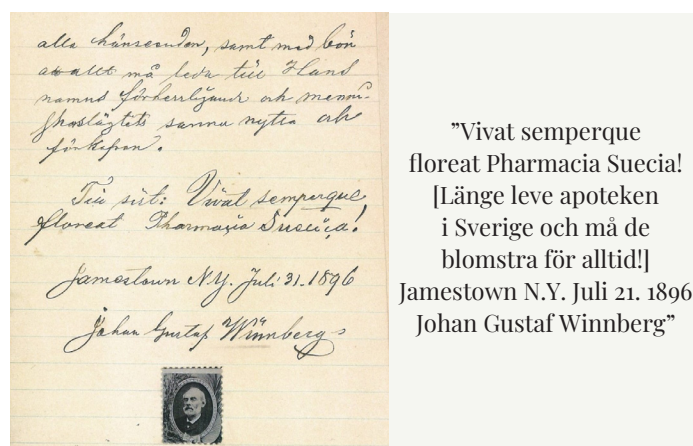 alla hänseenden, samt med bön
att allt må leda till Hans
namns förherrligande och menni-
skoslägtets sanna nytta och
förkofran.
Till sist: Vivat semperque
floreat Pharmacia Suecica!
Jamestown N.Y. Juli 31. 1896
Johan Gustaf Winnberg
”Vivat semperque
floreat Pharmacia Suecia!
[Länge leve apoteken
i Sverige och må de
blomstra för alltid!]
Jamestown N.Y. Juli 21. 1896
Johan Gustaf Winnberg”